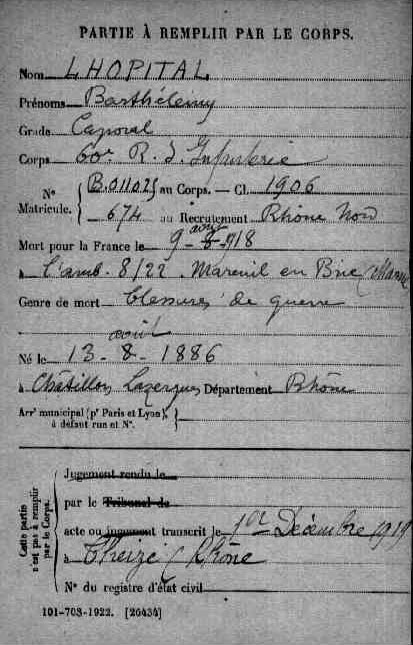 PARTIE À REMPLIR PAR LE CORPS.
Nom LHOPITAL
Prénoms Barthélemy
Grade Caporal
Corps 60e R. d'Infanterie
N° Matricule. B.01102 au Corps. — Cl. 1906
674 au Recrutement Rhône Nord
août
Mort pour la France le 9 - 8 - 18
à l'amb. 8/22. Mareuil en Brie (Marne
Genre de mort blessures de guerre
août
Né le 13 - 8 - 1886
à Châtillon Département Rhône
Arr' municipal (p' Paris et Lyon),
à défaut rue et N°.
Cette partie
n'est pas à remplir
par le Corps.
Jugement rendu le
par le Tribunal de
acte ou jugement transcrit le 1er Décembre 1919
à Theizé (Rhône
N° du registre d'état civil
101-708-1922. [26434]